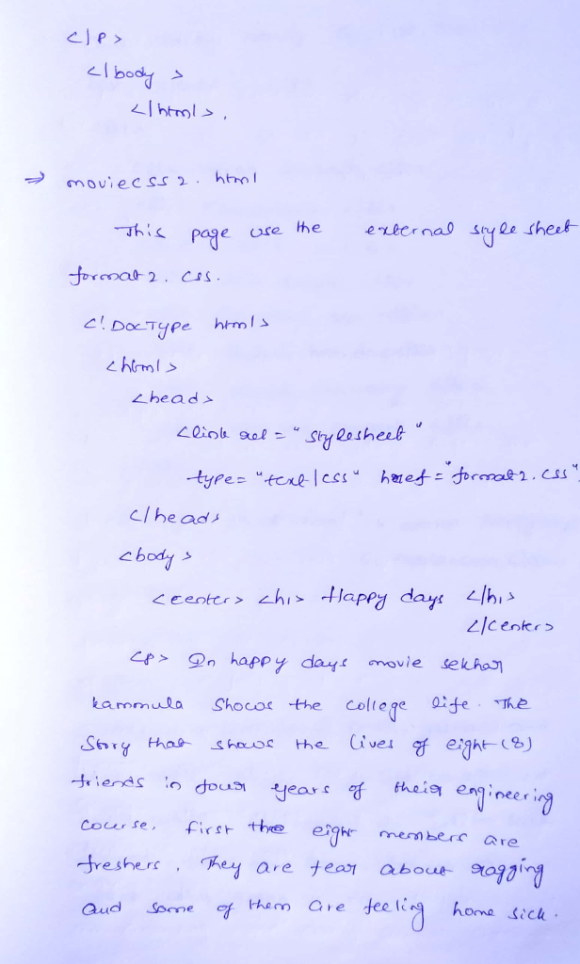 </p>
</body>
</html>.
⇒ moviecss2.html
This page use the external style sheet
format2.css.
<!DOCType html>
<html>
<head>
<link rel = "stylesheet"
type= "text/css" href = "format2.css"
</head>
<body>
<center> <h1> Happy days </h1>
</center>
<p> In happy days movie sekhar
kammula Shows the college life. The
Story that shows the lives of eight (8)
friends in four years of their engineering
course. first the eight members are
freshers. They are fear about ragging
and some of them are feeling home sick.